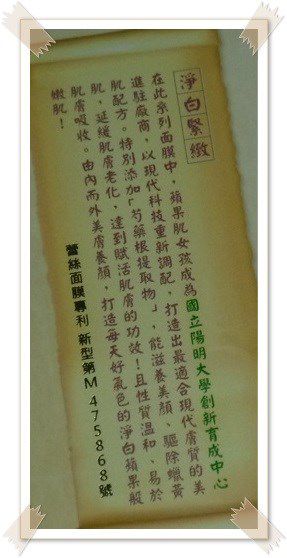 淨白緊緻
在此系列面膜中,蘋果肌女孩成為國立陽明大學創新育成中心
進駐廠商,以現代科技重新調配,打造出最適合現代膚質的美
肌配方。特別添加「芍藥根提取物」,能滋養美顏,驅除蠟黃
肌,延緩肌膚老化,達到賦活肌膚的功效!且性質溫和、易於
肌膚吸收。由內而外美膚養顏,打造每天好氣色的淨白蘋果般
嫩肌!
蕾絲面膜專利 新型第M 475868號